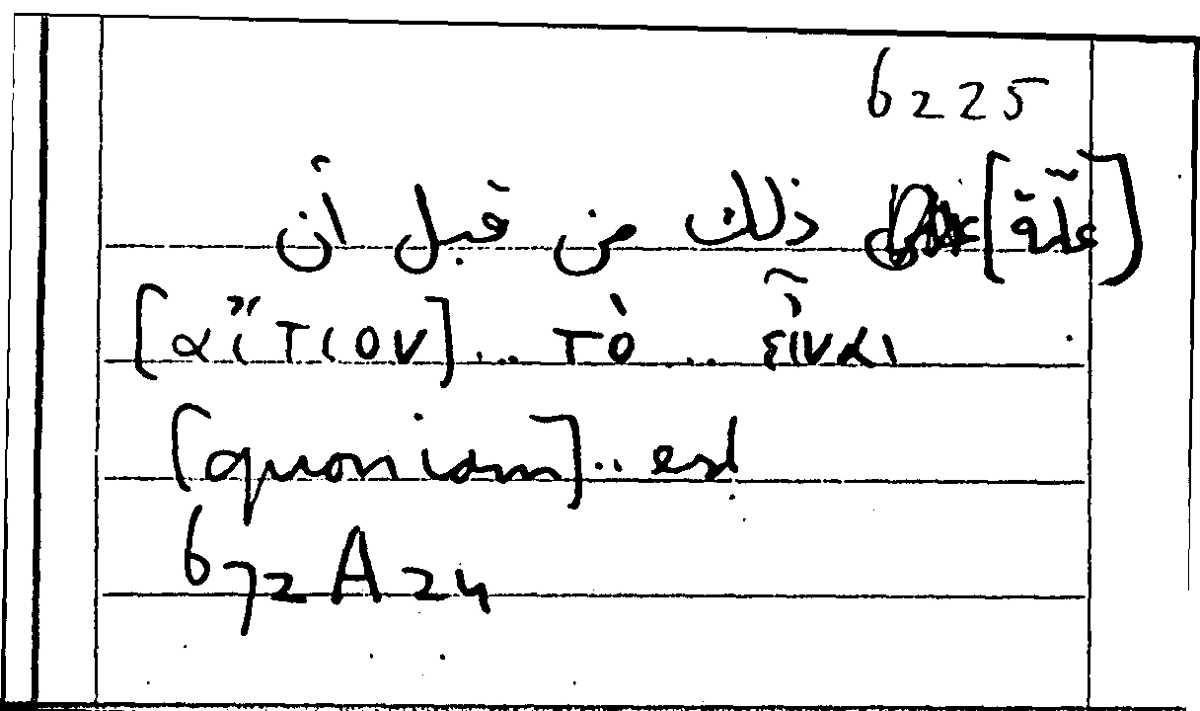 6225
[علّة] ذلك من قبل أن
[αἴτιον] ... τὸ ... εἶναι
[quoniam] ... est
672 A 24